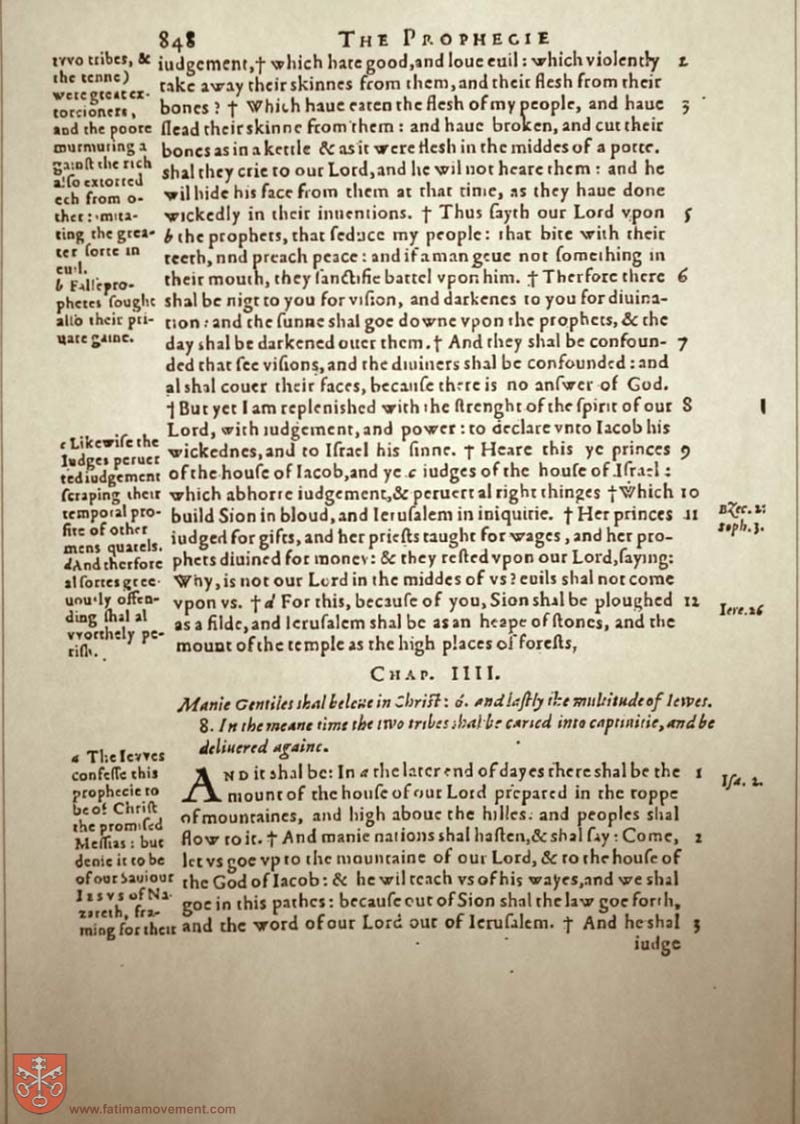 848 THE PROPHECIE
iudgement,† which hate good,and loue euil: which violently 2
take away their skinnes from them,and their flesh from their
bones? † Which haue eaten the flesh of my people, and haue 3
flead their skinne from them: and haue broken, and cut their
bones as in a kettle & as it were flesh in the middes of a potte.
shal they crie to our Lord,and he wil not heare them: and he
wil hide his face from them at that time, as they haue done
wickedly in their inuentions. † Thus sayth our Lord vpon 5
b the prophets, that seduce my people: that bite with their
teeth, nnd preach peace: and if a man geue not something in
their mouth, they sanctifie battel vpon him. † Therfore there 6
shal be nigt to you for vision, and darkenes to you for diuina-
tion: and the sunne shal goe downe vpon the prophets, & the
day shal be darkened ouer them.† And they shal be confoun- 7
ded that see visions, and the diuiners shal be confounded: and
al shal couer their faces, because there is no answer of God.
†But yet I am replenished with the strenght of the spirit of our 8
Lord, with iudgement, and power: to declare vnto Iacob his
wickednes, and to Israel his sinne. † Heare this ye princes 9
of the house of Iacob, and ye c iudges of the house of Israel:
which abhorre iudgement,& peruert al right thinges †Which 10
build Sion in bloud, and Ierusalem in iniquitie. † Her princes 11
iudged for gifts, and her priests taught for wages, and her pro-
phets diuined for money: & they rested vpon our Lord, saying:
Why, is not our Lord in the middes of vs? euils shal not come
vpon vs. † d For this, because of you, Sion shal be ploughed 12
as a filde, and Ierusalem shal be as an heape of stones, and the
mount of the temple as the high places of forests,
tvvo tribes, &
the tenne)
were great ex-
torcioners,
and the poore
murmuring a
gainst the rich
also extorted
ech from o-
ther: imita-
ting the grea-
ter sorte in
euil.
b False pro-
phetes sought
also their pri-
uate gaine.
c Likewise the
Iudges peruer
ted iudgement
scraping their
temporal pro-
fite of other
mens quarels.
d And therfore
al sortes gree-
uously offen-
ding shal al
vvorthely pe-
rish.
Ezec. 2:
soph. 3.
Iere. 26
CHAP. IIII.
Manie Gentiles shal beleue in Christ: 6. and lastly the multitude of Iewes.
8. In the meane time the two tribes shal be caried into captiuitie, and be
deliuered againe.
AND it shal be: In a the later end of dayes there shal be the 1
mount of the house of our Lord prepared in the toppe
of mountaines, and high aboue the hilles: and peoples shal
flow to it. † And manie nations shal hasten,& shal say: Come, 2
let vs goe vp to the mountaine of our Lord, & to the house of
the God of Iacob: & he wil teach vs of his wayes, and we shal
goe in this pathes: because out of Sion shal the law goe forth,
and the word of our Lord out of Ierusalem. † And he shal 3
iudge
a The Ievves
confesse this
prophecie to
be of Christ
the promised
Messias: but
denie it to be
of our Sauiour
IESVS of Na-
zareth, fra-
ming for their
Isa. 2.
www.fatimamovement.com